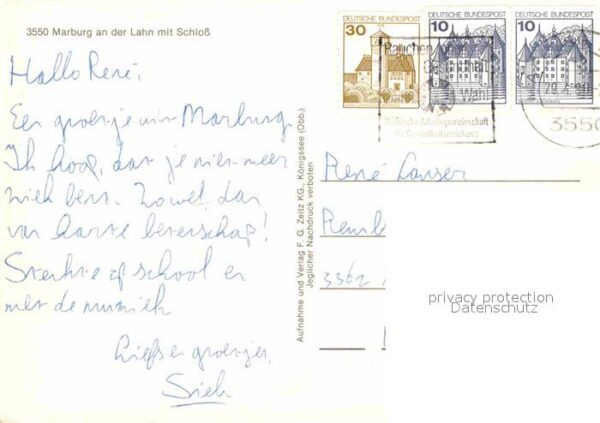 3550 Marburg an der Lahn mit Schloß
Hallo René,
Een groetje uit Marburg.
Ik hoop, dat je niet meer
ziek bent. Zo wel, dan
van harte beterschap!
Sterkte op school en
met de muziek
Liefs en groetjes,
Aufnahme und Verlag F. G. Zeitz KG., Königssee (Obb.)
Jeglicher Nachdruck verboten
30
DEUTSCHE BUNDESPOST
10
DEUTSCHE BUNDESPOST
10
Rauchen
Gesundheit
Wahl
3550
René
3362
privacy protection
Datenschutz